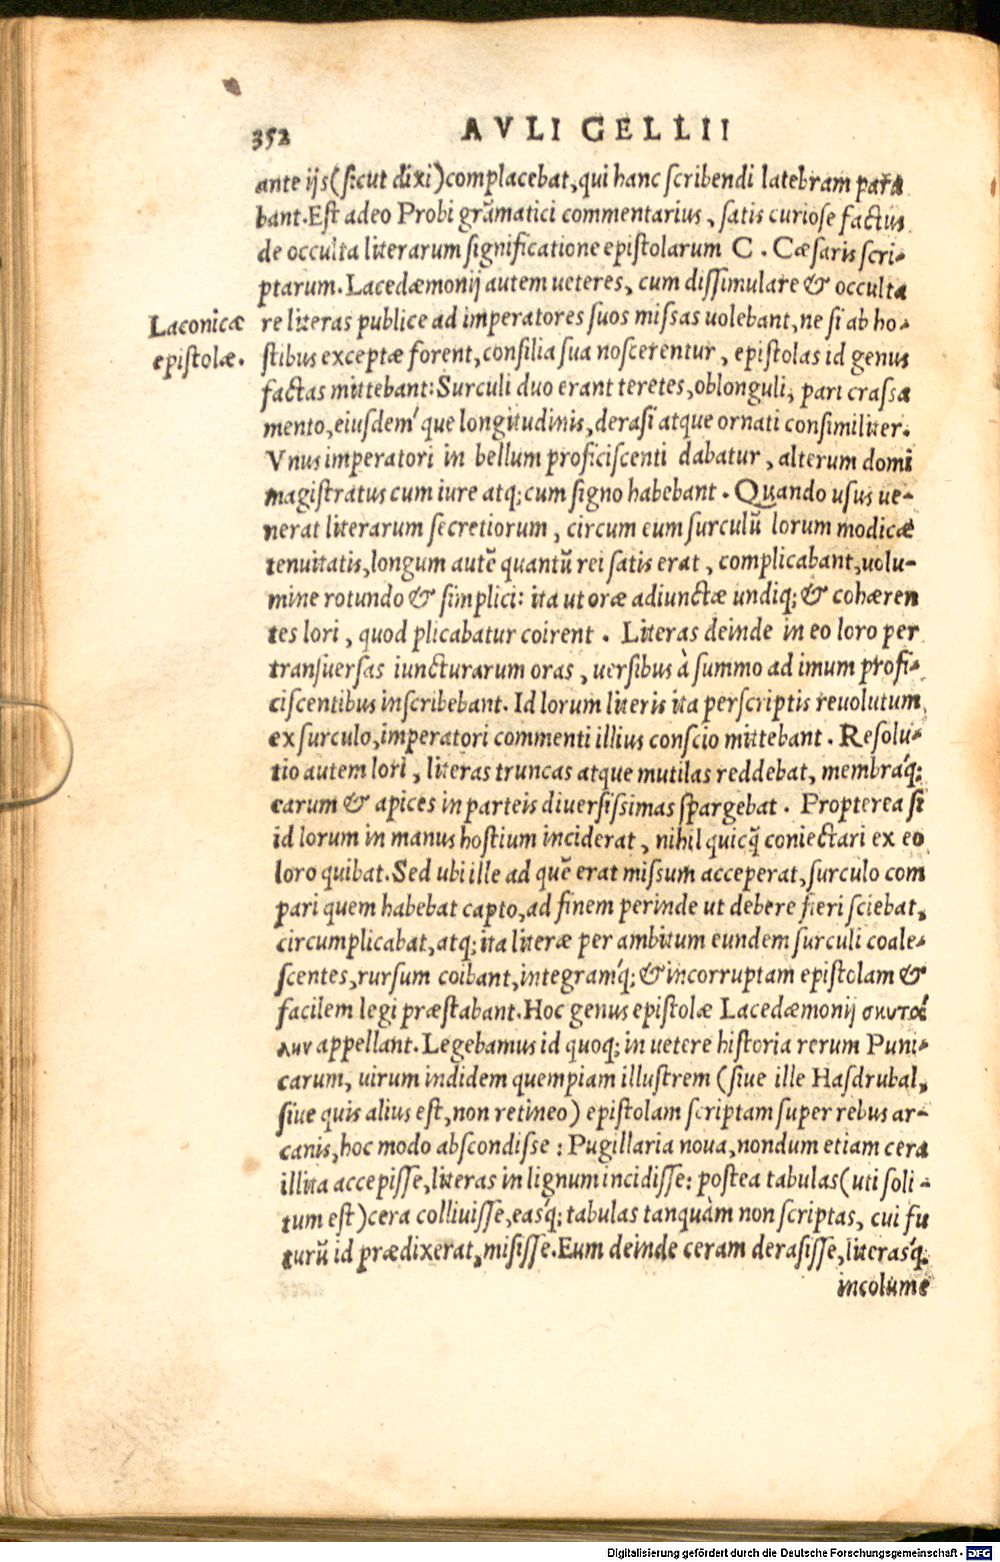 352 AVLI GELLII
ante ijs (ſicut dixi) complacebat, qui hanc ſcribendi latebram para
bant. Eſt adeo Probi grāmatici commentarius, ſatis curioſe factus
de occulta literarum ſignificatione epiſtolarum C. Cæſaris ſcri-
ptarum. Lacedæmonij autem ueteres, cum diſſimulare & occulta
Laconicæ
epiſtolæ.
re literas publice ad imperatores ſuos miſſas uolebant, ne ſi ab ho-
ſtibus exceptæ forent, conſilia ſua noſcerentur, epiſtolas id genus
factas mittebant: Surculi duo erant teretes, oblonguli, pari craſſa
mento, eiuſdem´ que longitudinis, deraſi atque ornati conſimiliter.
Vnus imperatori in bellum proficiſcenti dabatur, alterum domi
magiſtratus cum iure atq; cum ſigno habebant. Quando uſus ue-
nerat literarum ſecretiorum, circum eum ſurculū lorum modicæ
tenuitatis, longum autē quantū rei ſatis erat, complicabant, uolu-
mine rotundo & ſimplici: ita ut oræ adiunctæ undiq; & cohæren
tes lori, quod plicabatur coirent. Literas deinde in eo loro per
tranſuerſas iuncturarum oras, uerſibus à ſummo ad imum profi-
ciſcentibus inſcribebant. Id lorum literis ita perſcriptis reuolutum
ex ſurculo, imperatori commenti illius conſcio mittebant. Reſolu-
tio autem lori, literas truncas atque mutilas reddebat, membraq́;
earum & apices in parteis diuerſiſsimas ſpargebat. Propterea ſi
id lorum in manus hoſtium inciderat, nihil quicq̄ coniectari ex eo
loro quibat. Sed ubi ille ad quē erat miſſum acceperat, ſurculo com
pari quem habebat capto, ad finem perinde ut debere fieri ſciebat,
circumplicabat, atq; ita literæ per ambitum eundem ſurculi coale-
ſcentes, rurſum coibant, integramq́; & incorruptam epiſtolam &
facilem legi præſtabant. Hoc genus epiſtolæ Lacedæmonij σκυτά
λην appellant. Legebamus id quoq; in uetere hiſtoria rerum Puni-
carum, uirum indidem quempiam illuſtrem (ſiue ille Haſdrubal,
ſiue quis alius eſt, non retineo) epiſtolam ſcriptam ſuper rebus ar-
canis, hoc modo abſcondiſſe: Pugillaria noua, nondum etiam cera
illita accepiſſe, literas in lignum incidiſſe: poſtea tabulas (uti ſoli-
tum eſt) cera colliuiſſe, eaſq́; tabulas tanquàm non ſcriptas, cui fu
turū id prædixerat, miſiſſe. Eum deinde ceram deraſiſſe, literasq́;
incolume
Digitalisierung gefördert durch die Deutsche Forschungsgemeinschaft - DFG